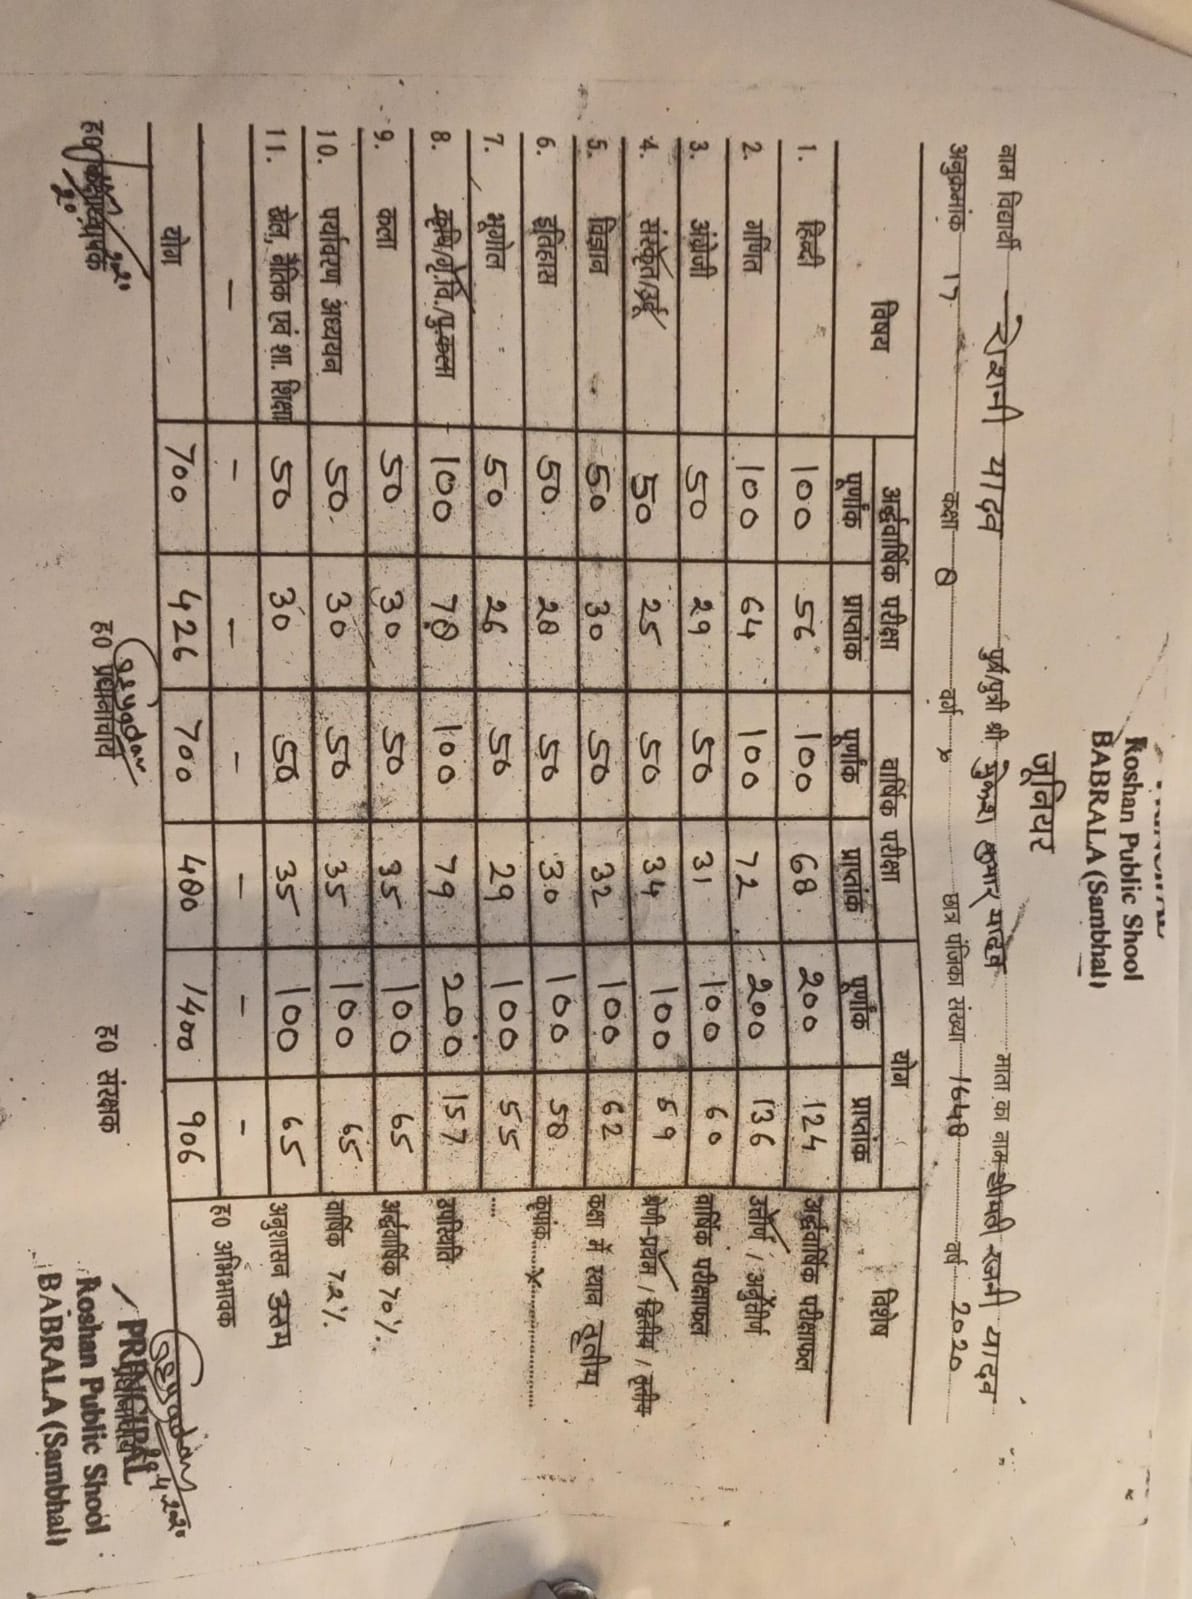 Roshan Public Shool
BABRALA (Sambhal)
जूनियर
नाम विद्यार्थी रोशनी यादव पुत्र/पुत्री श्री मुकेश कुमार यादव माता का नाम श्रीमती रजनी यादव
अनुक्रमांक 17 कक्षा 8 वर्ग × छात्र पंजिका संख्या 1648 वर्ष 2020
विषय अर्द्धवार्षिक परीक्षा वार्षिक परीक्षा योग विशेष
पूर्णांक प्राप्तांक पूर्णांक प्राप्तांक पूर्णांक प्राप्तांक
1. हिन्दी 100 56 100 68 200 124 अर्द्धवार्षिक परीक्षाफल
2. गणित 100 64 100 72 200 136 उत्तीर्ण / अनुत्तीर्ण
3. अंग्रेजी 50 29 50 31 100 60 वार्षिक परीक्षाफल
4. संस्कृत/उर्दू 50 25 50 34 100 59 श्रेणी-प्रथम / द्वितीय / तृतीय
5. विज्ञान 50 30 50 32 100 62 कक्षा में स्थान तृतीय
6. इतिहास 50 28 50 30 100 58 कृपांक ×
7. भूगोल 50 26 50 29 100 55
8. कृषि/गृ.वि./पु.कला 100 78 100 79 200 157 उपस्थिति
9. कला 50 30 50 35 100 65 अर्द्धवार्षिक 70%
10. पर्यावरण अध्ययन 50 30 50 35 100 65 वार्षिक 72%
11. खेल, नैतिक एवं शा. शिक्षा 50 30 50 35 100 65 अनुशासन उत्तम
- - - - - - - ह0 अभिभावक
योग 700 426 700 480 1400 906
ह0 कक्षाध्यापक ह0 प्रधानाचार्य ह0 संरक्षक प्रधानाचार्य
PRINCIPAL
Roshan Public Shool
BABRALA (Sambhal)